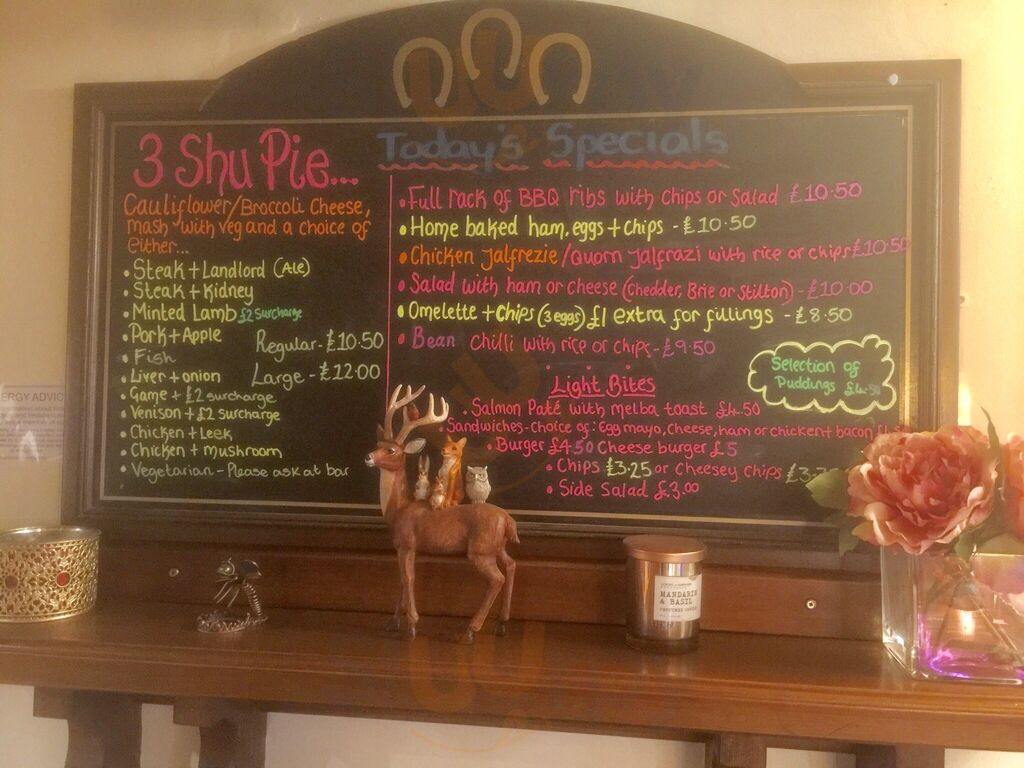 3 Shu Pie...
Cauliflower/Broccoli Cheese,
mash with veg and a choice of
either...
• Steak + Landlord (Ale)
• Steak + Kidney
• Minted Lamb £2 surcharge
• Pork + Apple
• Fish
• Liver + onion
• Game + £2 surcharge
• Venison + £2 surcharge
• Chicken + Leek
• Chicken + mushroom
• Vegetarian - Please ask at bar
Regular - £10.50
Large - £12.00
Today's Specials
• Full rack of BBQ ribs with chips or Salad £10.50
• Home baked ham, eggs + chips - £10.50
• Chicken Jalfrezie/Quorn Jalfrazi with rice or chips £10.50
• Salad with ham or cheese (Chedder, Brie or Stilton) - £10.00
• Omelette + chips (3 eggs) £1 extra for fillings - £8.50
• Bean Chilli with rice or chips - £9.50
Selection of
Puddings £4.50
Light Bites
• Salmon Paté with melba toast £4.50
• Sandwiches - choice of: Egg mayo, cheese, ham or chicken + bacon
• Burger £4.50 Cheese burger £5
• Chips £3.25 or Cheesey Chips
• Side Salad £3.00
ERGY ADVIC
MANDARIN
& BASIL